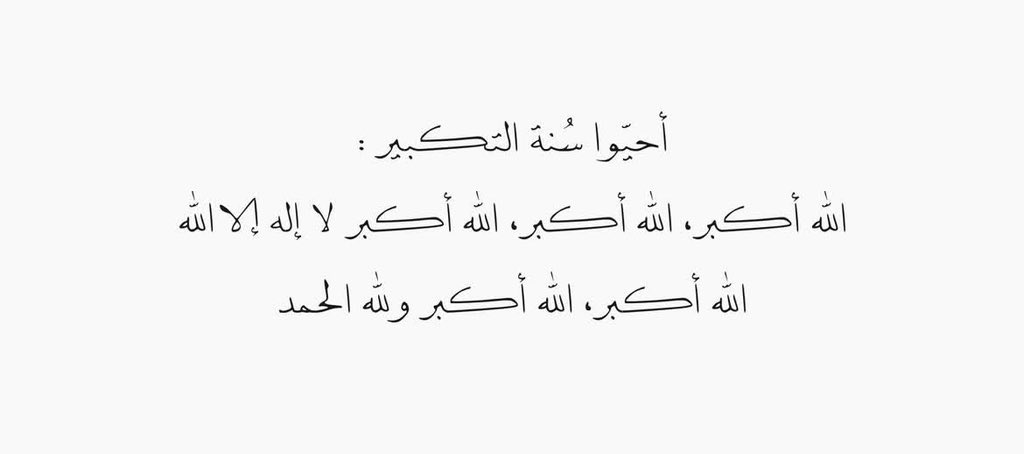 أحيّوا سُنة التكبير :
الله أكبر، الله أكبر، الله أكبر لا إله إلا الله
الله أكبر، الله أكبر ولله الحمد